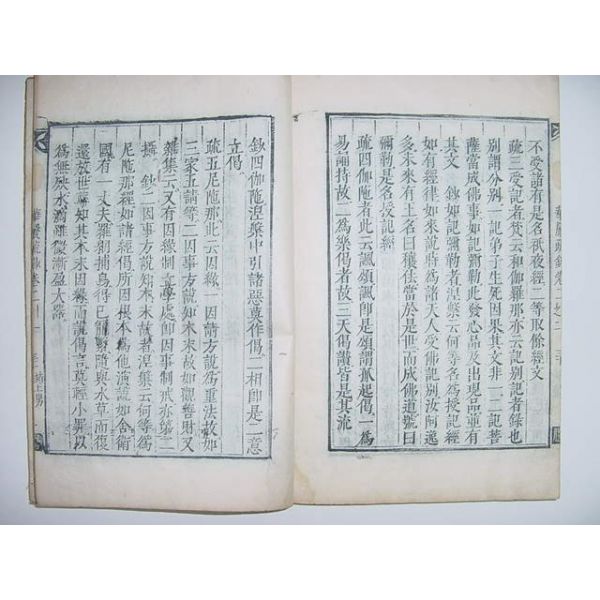 不受諸有是名祇夜經二等取餘經文
疏三受記者梵云和伽羅那亦云記別記者錄也
別謂分別一記弟子生死因果其文非一二記菩
薩當成佛事如記彌勒此發心品及出現品並有
其文 鈔如記彌勒者涅槃云何等名爲授記經
如有經律如來說時爲諸天人受佛記別汝阿逸
多未來有王名曰穰佉當於是世而成佛道號曰
彌勒是名授記經
疏四伽陀者此云諷頌諷即是頌謂孤起偈一爲
易誦持故二爲樂偈者故三天偈讚皆是其流
鈔四伽陀涅槃中引諸惡莫作偈二相即是二意
立偈
疏五尼陀那此云因緣一因請方說爲重法故如
三家五請等二因事方說知本末故如觀財又
雜集云又有因緣制立學處即因事制戒亦第二
攝 鈔二因事方說知本末故者涅槃云何等爲
尼陀那經如諸經偈所因根本爲他演說如舍衛
國有一丈夫羅網捕鳥得已籠繫隨與水草而復
還放世尊知其本末因緣而說偈言莫輕小罪以
爲無殃水渧雖微漸盈大器
華嚴疏鈔卷二